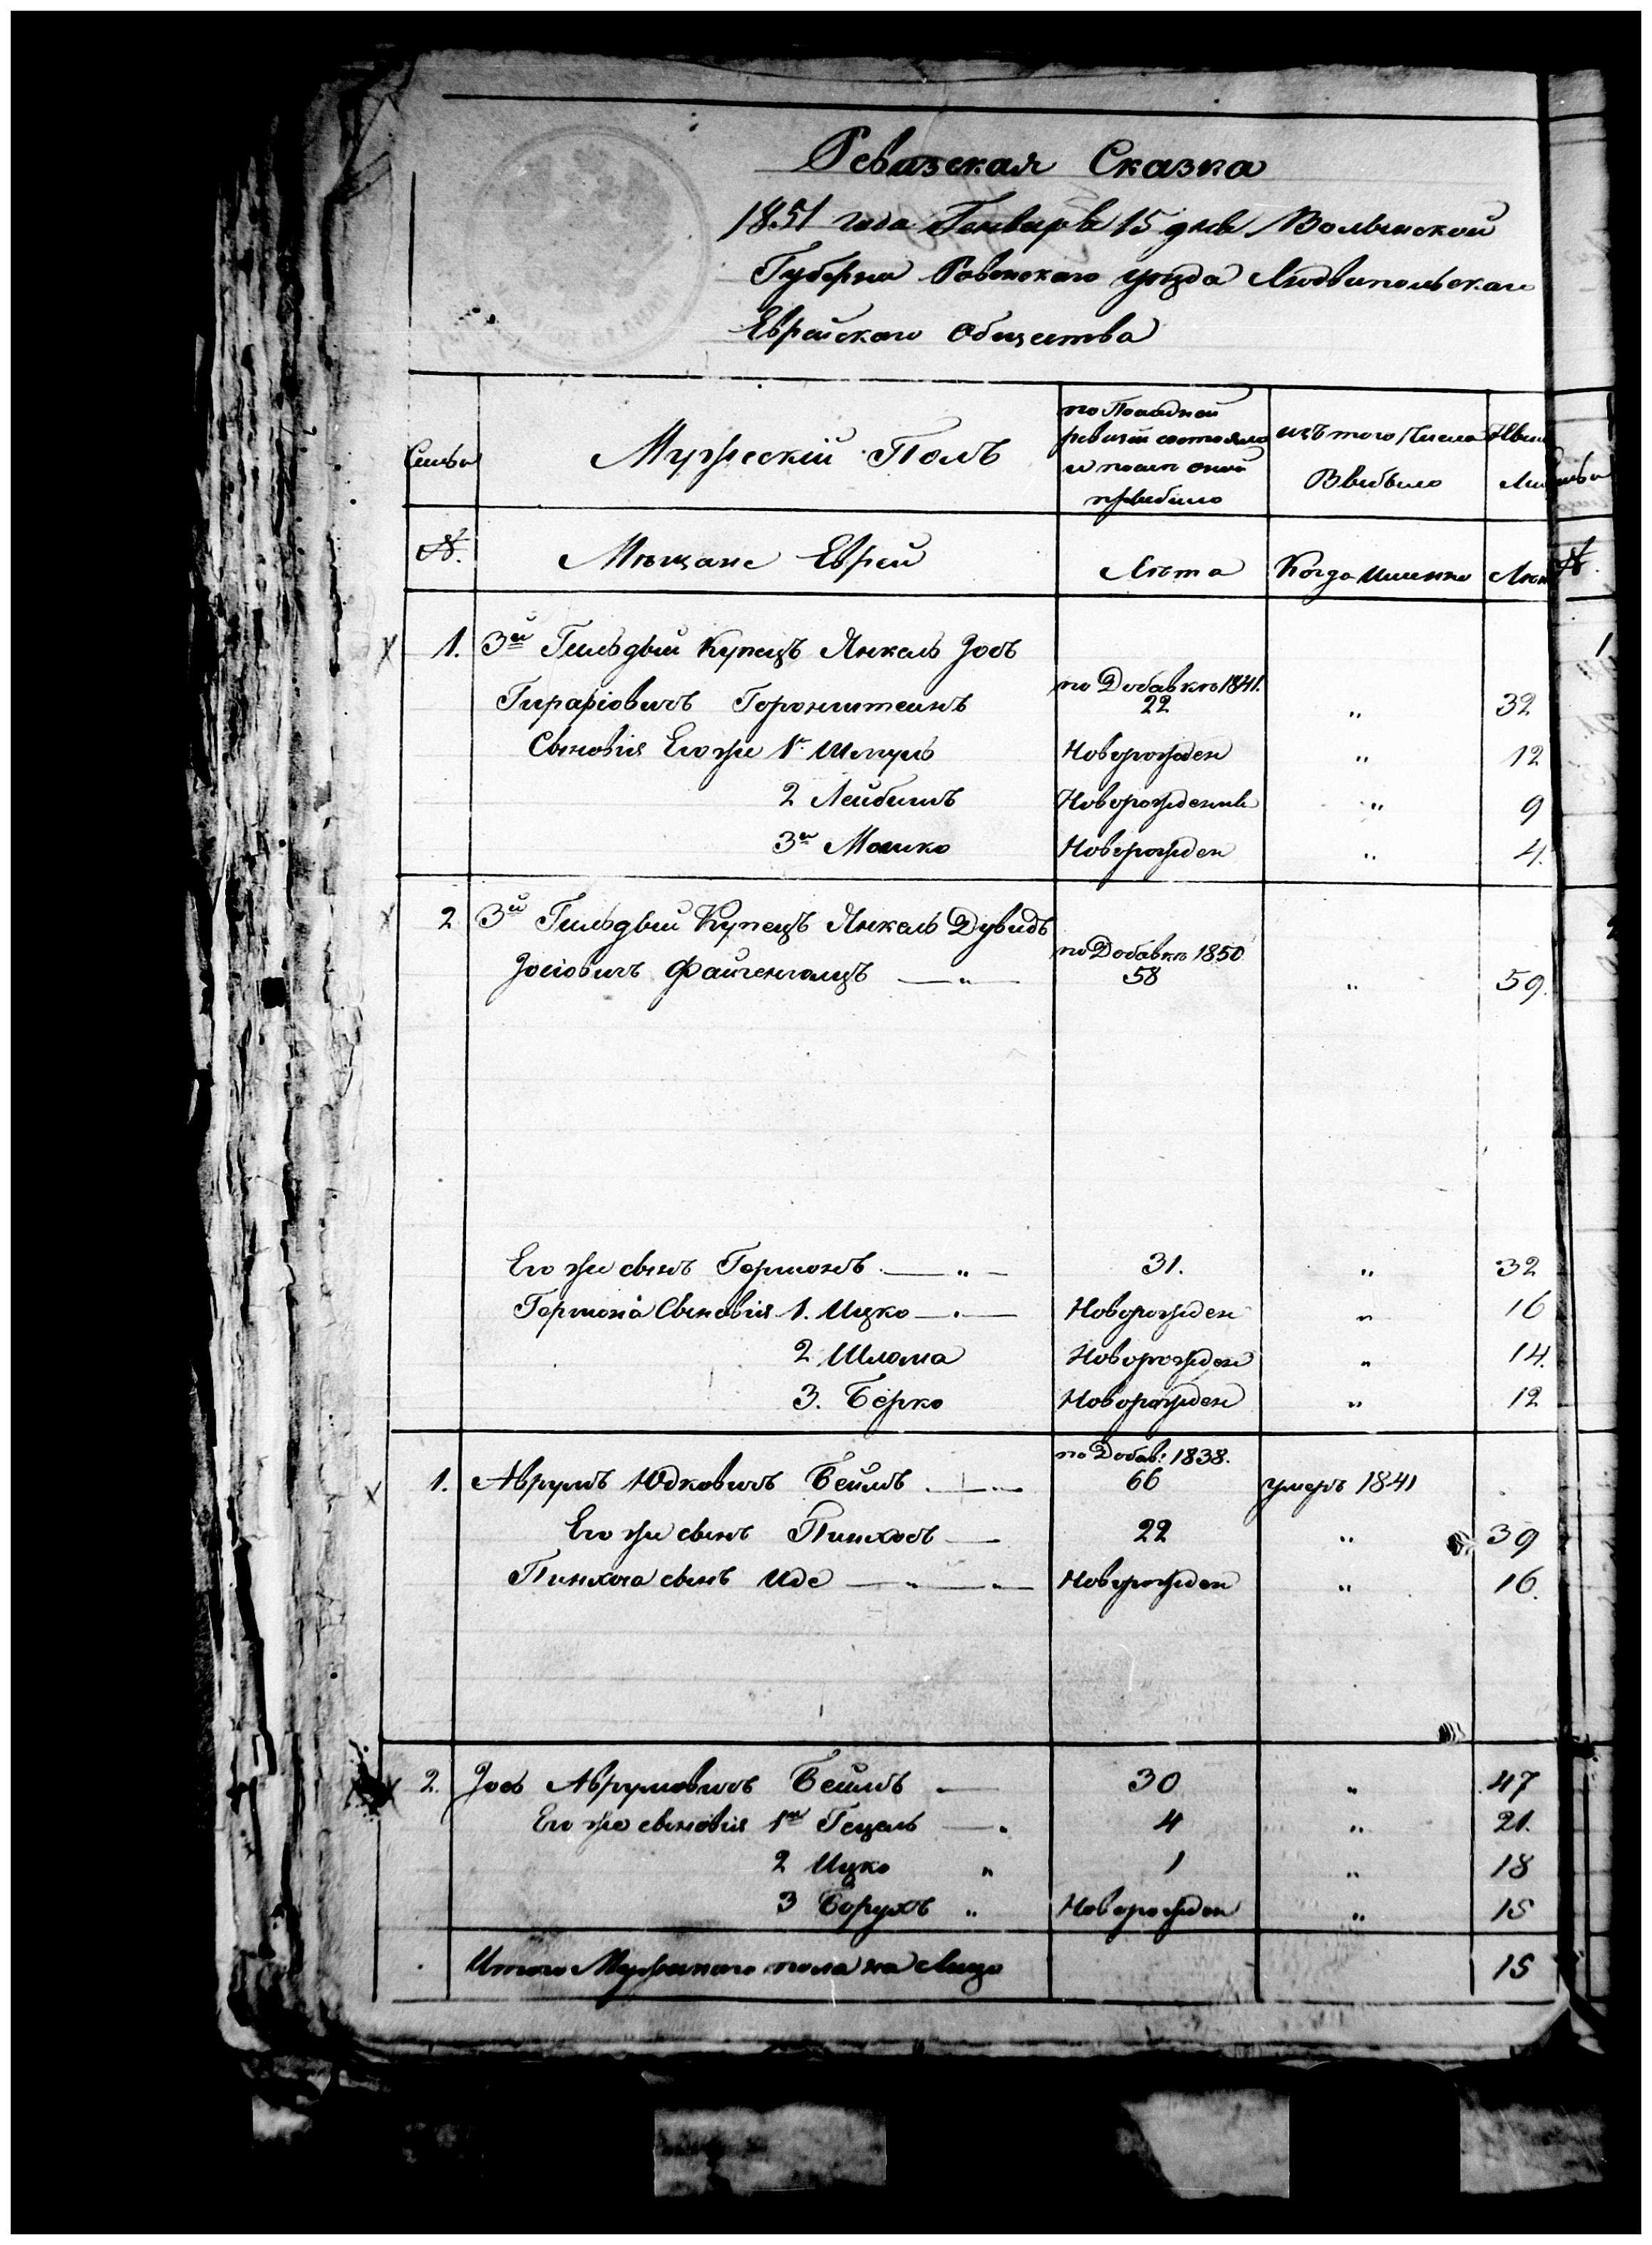 Ревизская Сказка
1851 года Генваря 15 дня Волынской
Губернии Ровенскаго уезда Людвипольскаго
Еврейскаго Общества
Семьи
Мужескій Полъ
по Последней
ревизіи состояло
и после оной
прибыло
изъ того Числа
Выбыло
№.
Мещане Евреи
Лета
Когда Именно
1. 3й Гильдыи Купецъ Янкель Зосъ
Горонштеинъ по Добавке 1841. 22 „ 32
Сыновія Его же 1й Шмуль Новорожден „ 12
2 Лейбишъ Новорожденны „ 9
3й Мошко Новорожден „ 4.
2 3й Гильдыи Купецъ Янкель Дувидъ
Зосіовичъ Файгенгольцъ — „ — по Добавке 1850 58 „ 59.
Его же сынъ Гершонъ — „ — 31. „ 32
Гершона Сыновія 1. Ицко — „ — Новорожден „ 16
2 Шлома Новорожден „ 14.
3. Берко Новорожден „ 12
1. Аврумъ Юдковичъ Беимъ по Добав: 1838. 66 умеръ 1841
Его же сынъ Пинхосъ — 22 „ 39
Пинхоса сынъ Иде — „ — „ — Новорожден „ 16.
2. Зось Аврумовичъ Беимъ — 30 „ 47
Его же сыновія 1й Гецель — „ 4 „ 21.
2 Ицко „ 1 „ 18
3 Борухъ „ Новорожден „ 15
Итого Мужескаго пола на Лицо 15